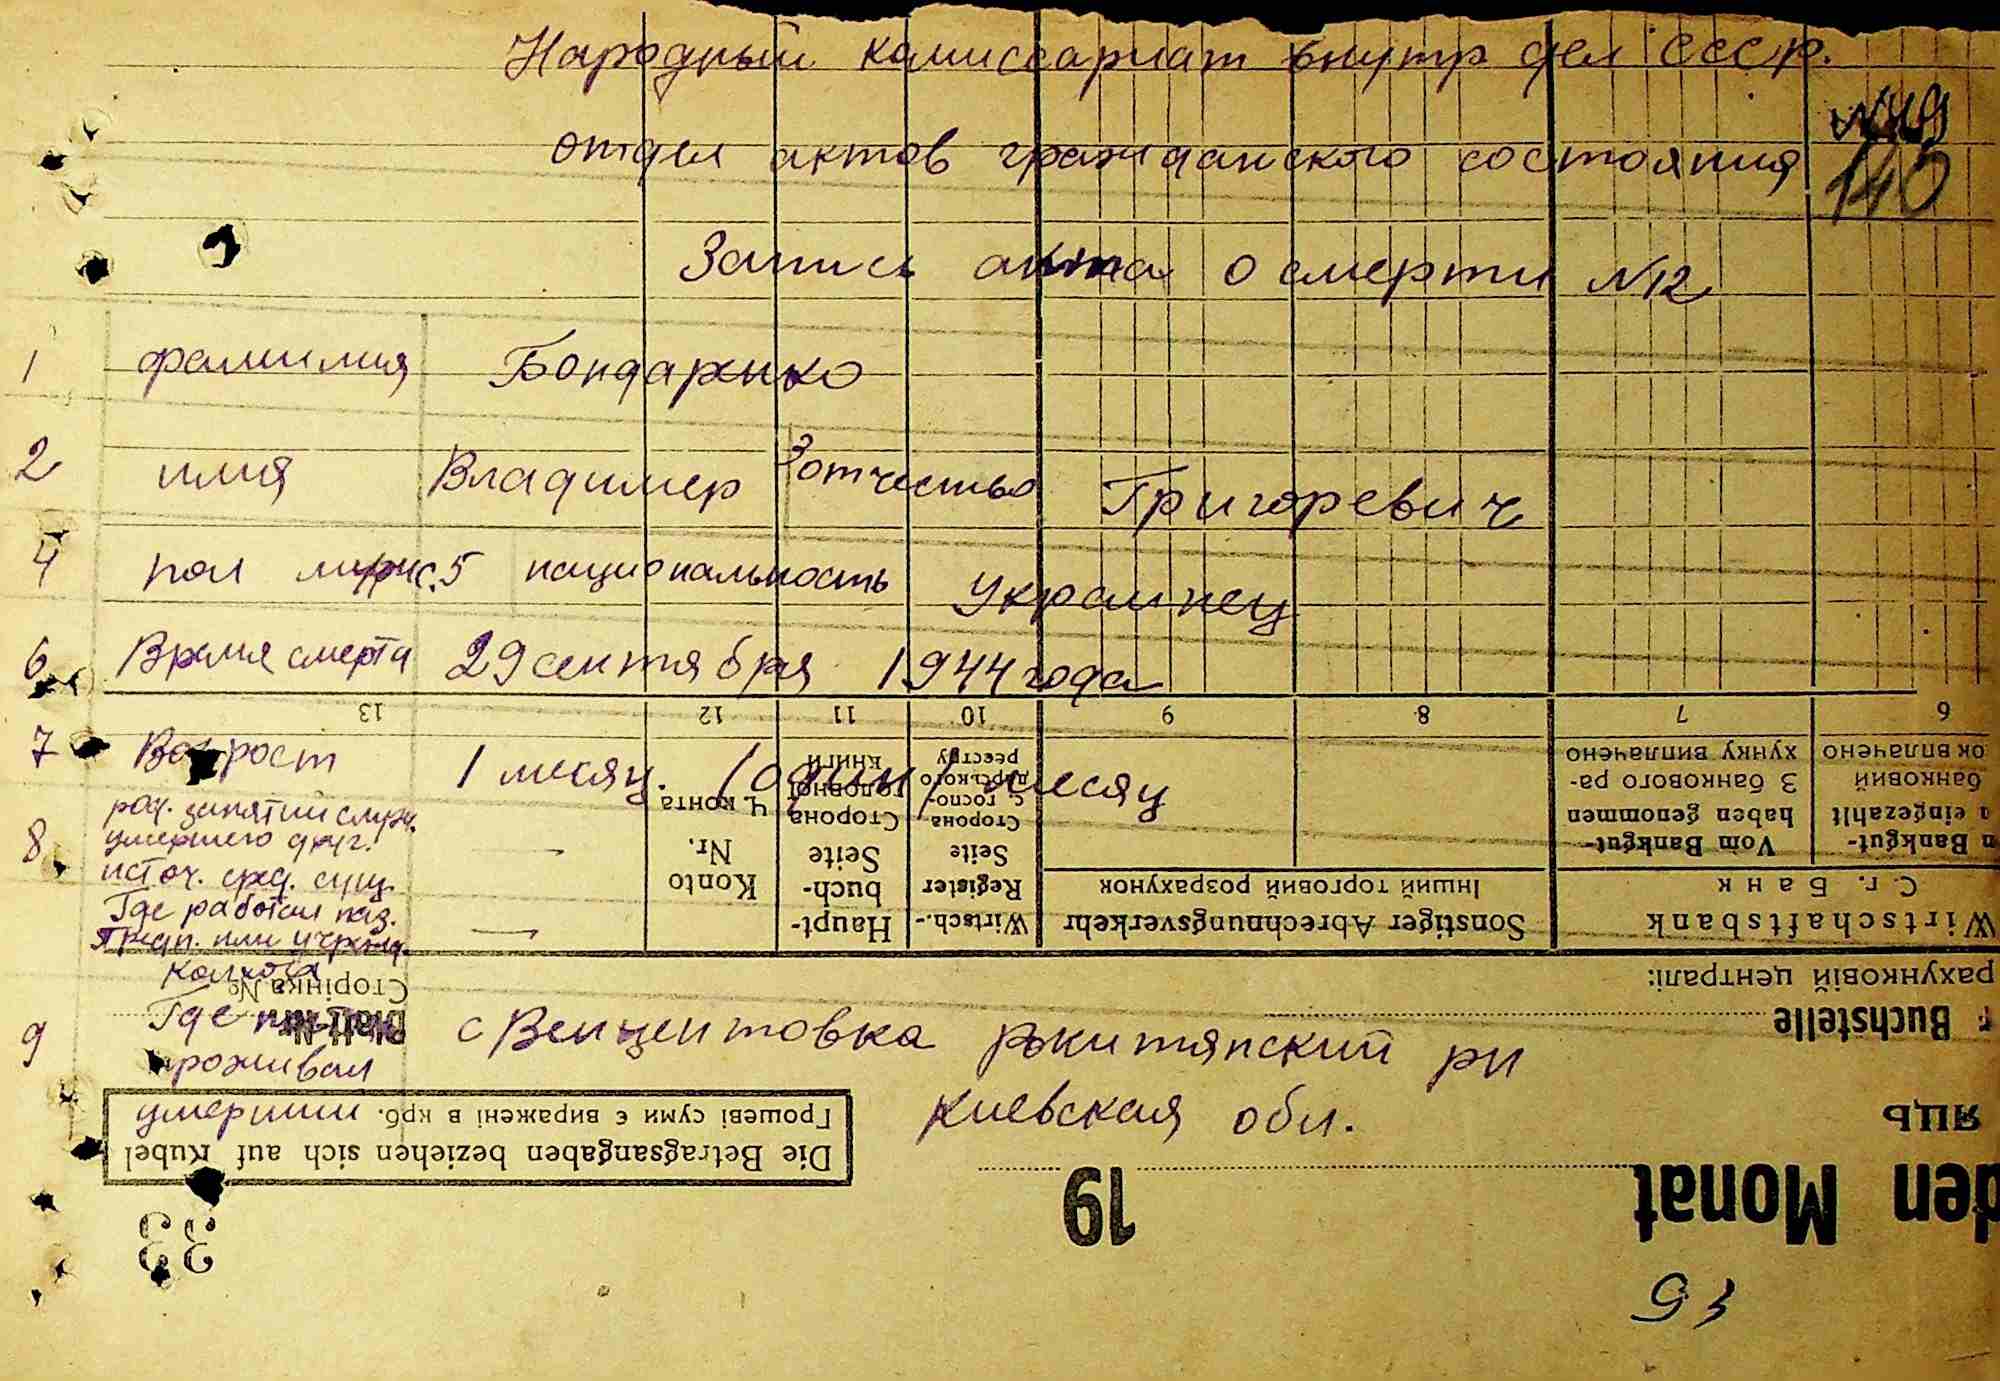 Народный комиссариат внутр дел СССР.
отдел актов гражданского состояния
140
Запись акта о смерти N12
1 фамилия Бондаренко
2 имя Владимер 3 отчество Григоревич
4 пол мужс. 5 национальность Украинец
6 Время смерти 29 сентября 1944 года
13 12 11 10 9 8 7 6
7 Возрост 1 месяц. /один/ месяц
8 род. занятий
умершего друг.
источ. сред. сущ. —
Где работал наз.
предп. или учрежд. —
колхоза
9 Где
проживал
умерший
с Венцентовка Ракитянский рн
Киевская обл.
Wirtschaftsbank
С. г. Банк
Vom Bankgut-
haben genommen
З банкового ра-
хунку виплачено
n Bankgut-
n eingezahlt
банковий
ок вплачено
Sonstiger Abrechnungsverkehr
Інший торговий розрахунок
Wirtsch.-
Register
Seite
Сторона
госпо-
дарського
реєстру
Haupt-
buch-
Seite
Сторона
головної
книги
Konto
Nr.
Ч. конта
рахунковій централі:
r Buchstelle
Сторінка №
Blatt Nr.
Die Betragsangaben beziehen sich auf Rubel
Грошеві суми є виражені в крб.
яць
den Monat
19
33
93